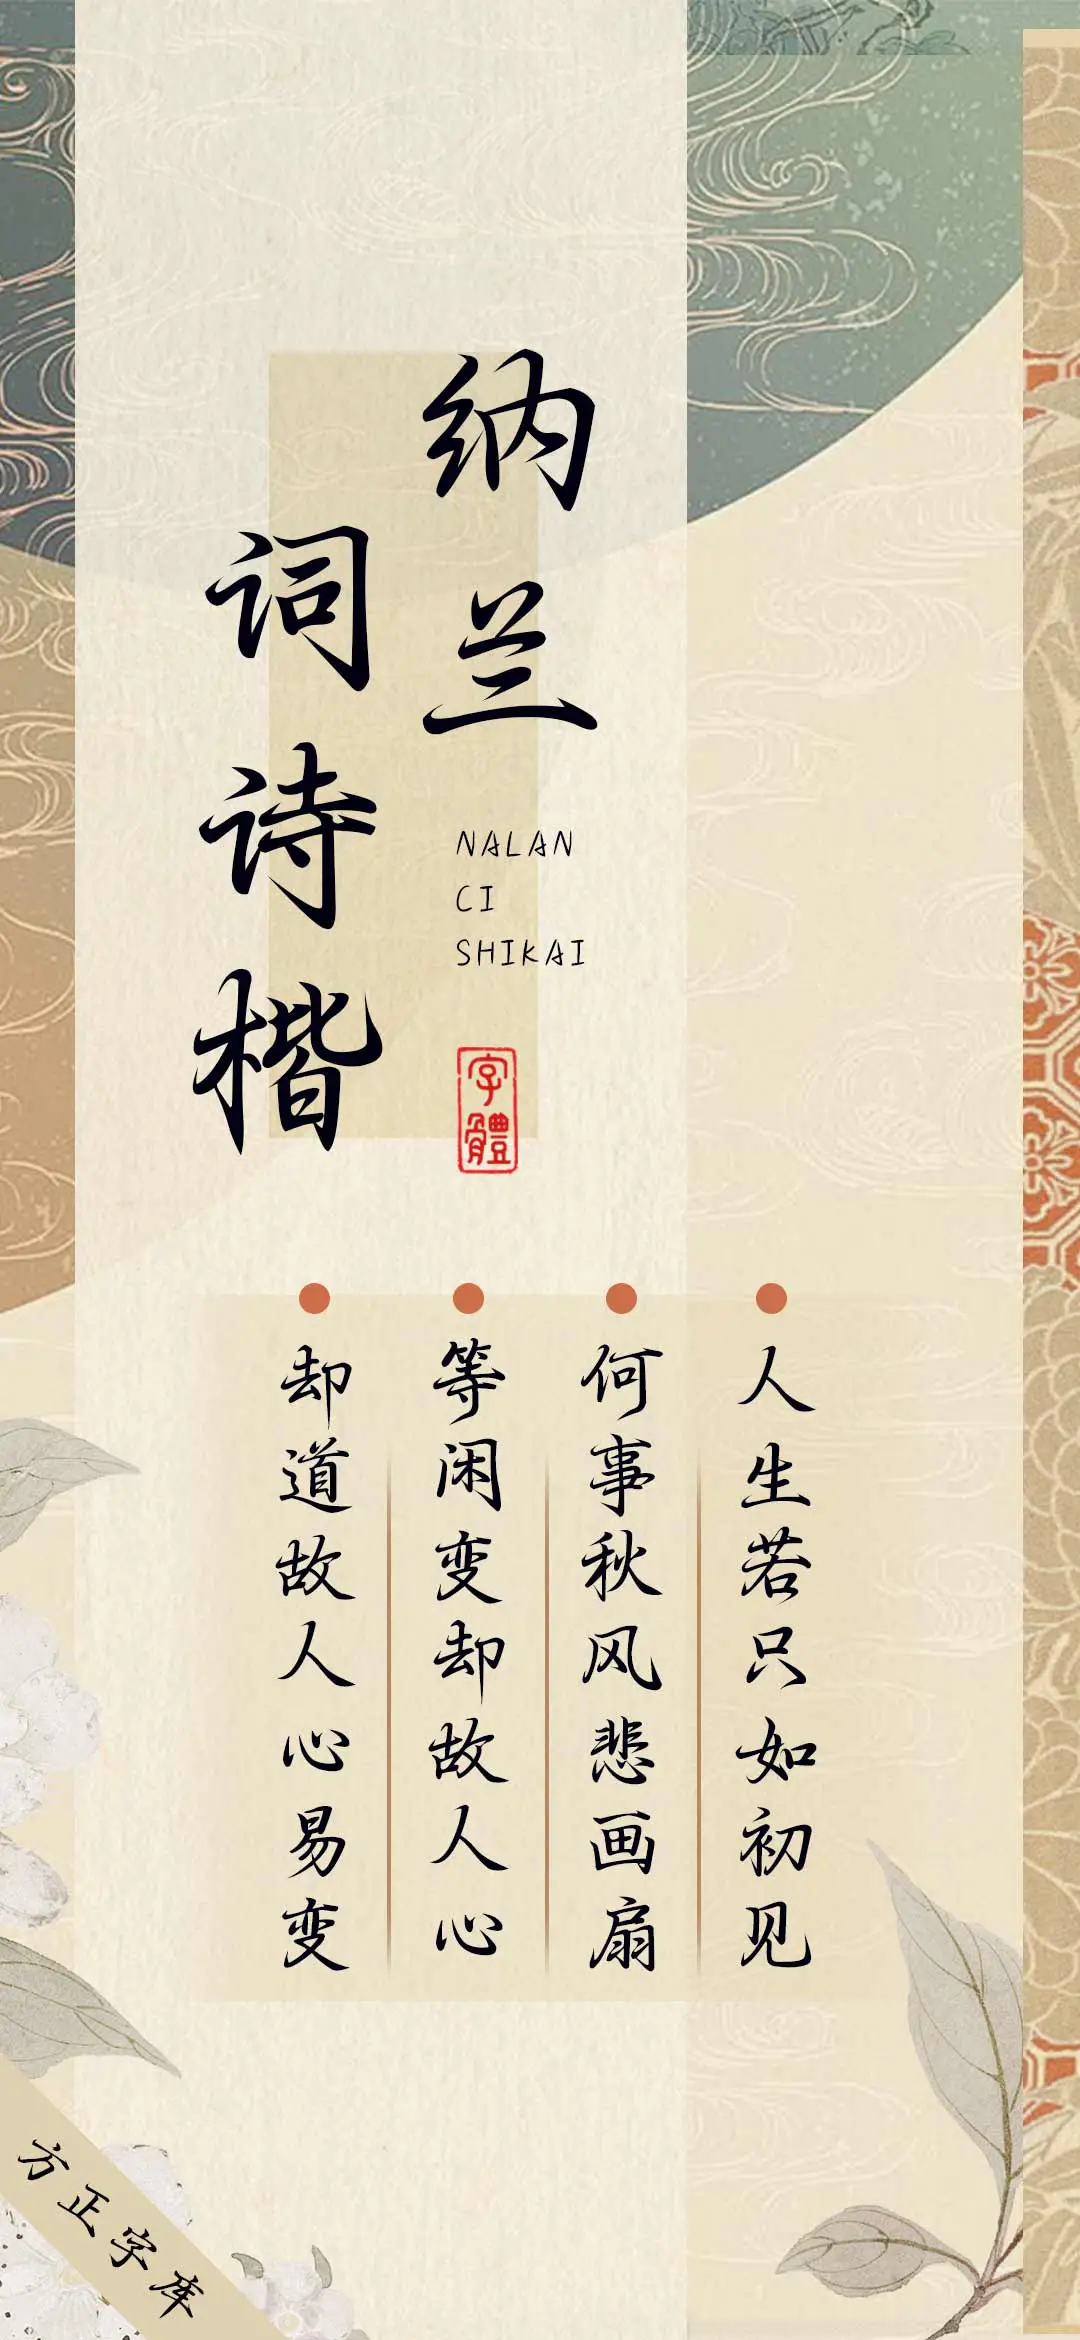 纳兰
词诗楷
NALAN
CI
SHIKAI
字體
人生若只如初见
何事秋风悲画扇
等闲变却故人心
却道故人心易变
方正字库